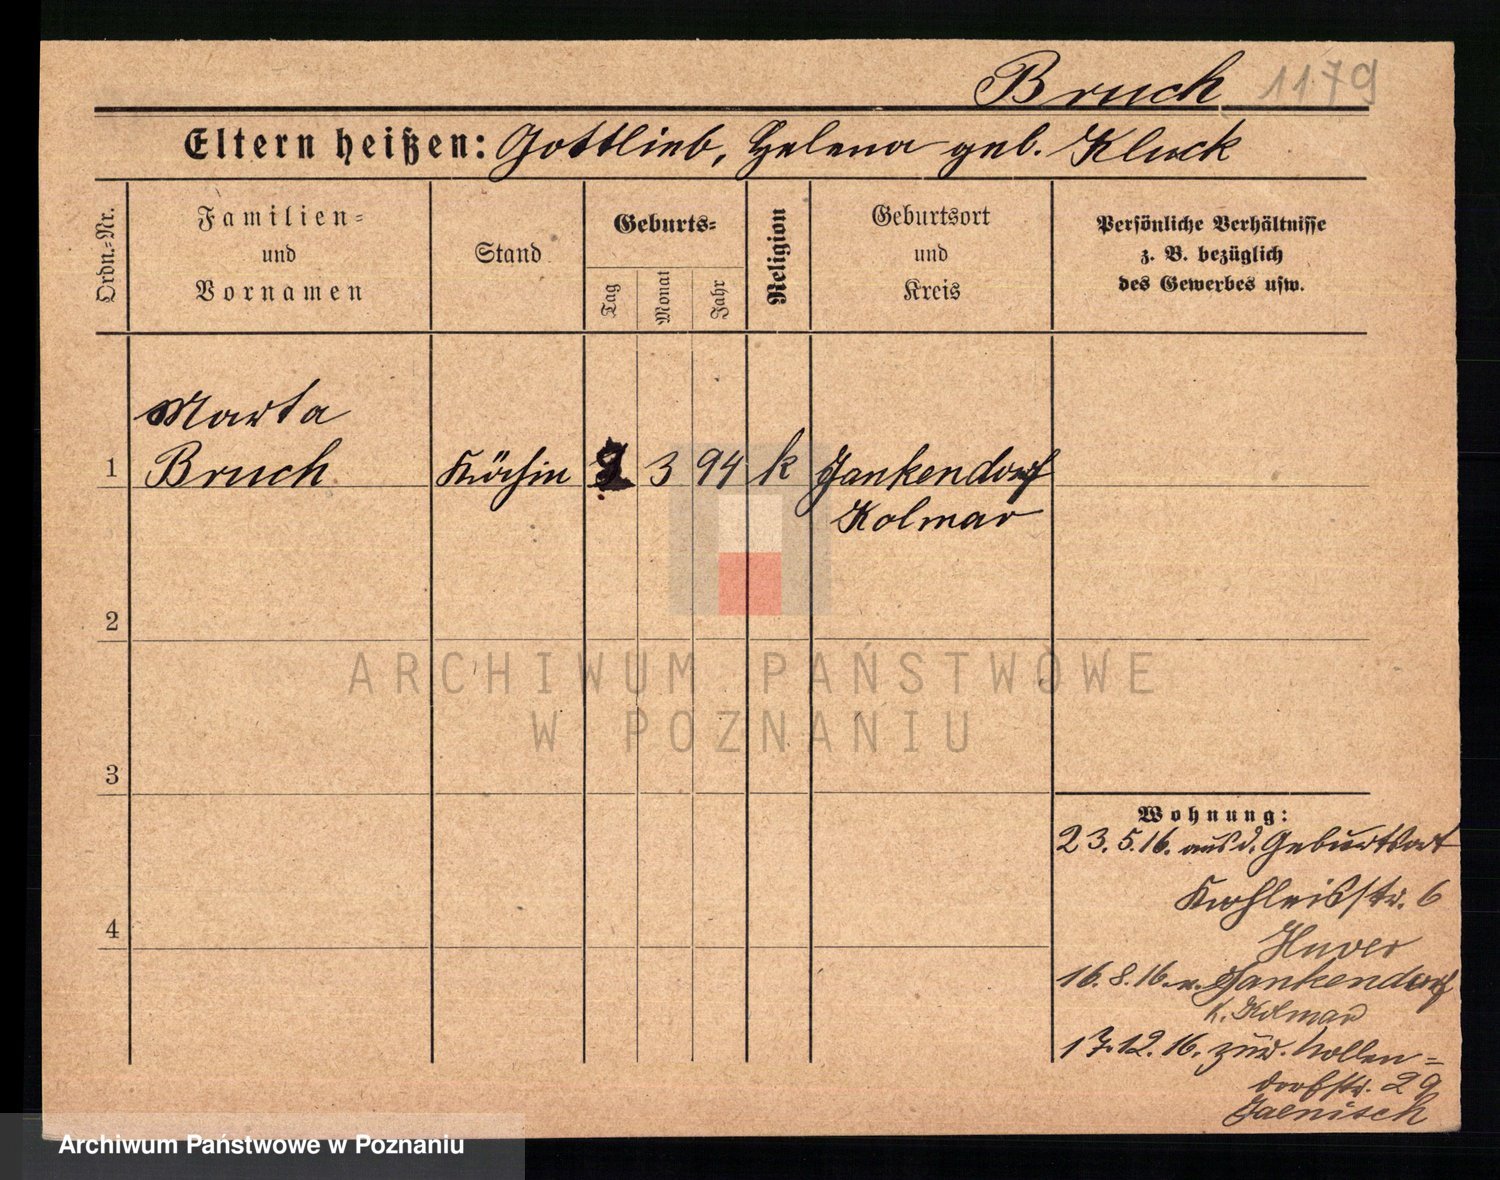 Bruch 1179
Eltern heißen: Gottlieb, Helena geb. Kluck
Ordn.=Nr.
Familien=
und
Vornamen
Stand
Geburts=
Tag
Monat
Jahr
Religion
Geburtsort
und
Kreis
Persönliche Verhältnisse
z. B. bezüglich
des Gewerbes usw.
Marta
1 Bruch Köchin 3 94 k Jankendorf
Kolmar
2
3
4
ARCHIWUM PAŃSTWOWE
W POZNANIU
Wohnung:
23.5.16. aus d. Geburtsort
str. 6
16.8.16. n. Jankendorf
K. Kolmar
17.12.16. zur. Nollen=
dorfstr. 29
Jaenisch
Archiwum Państwowe w Poznaniu